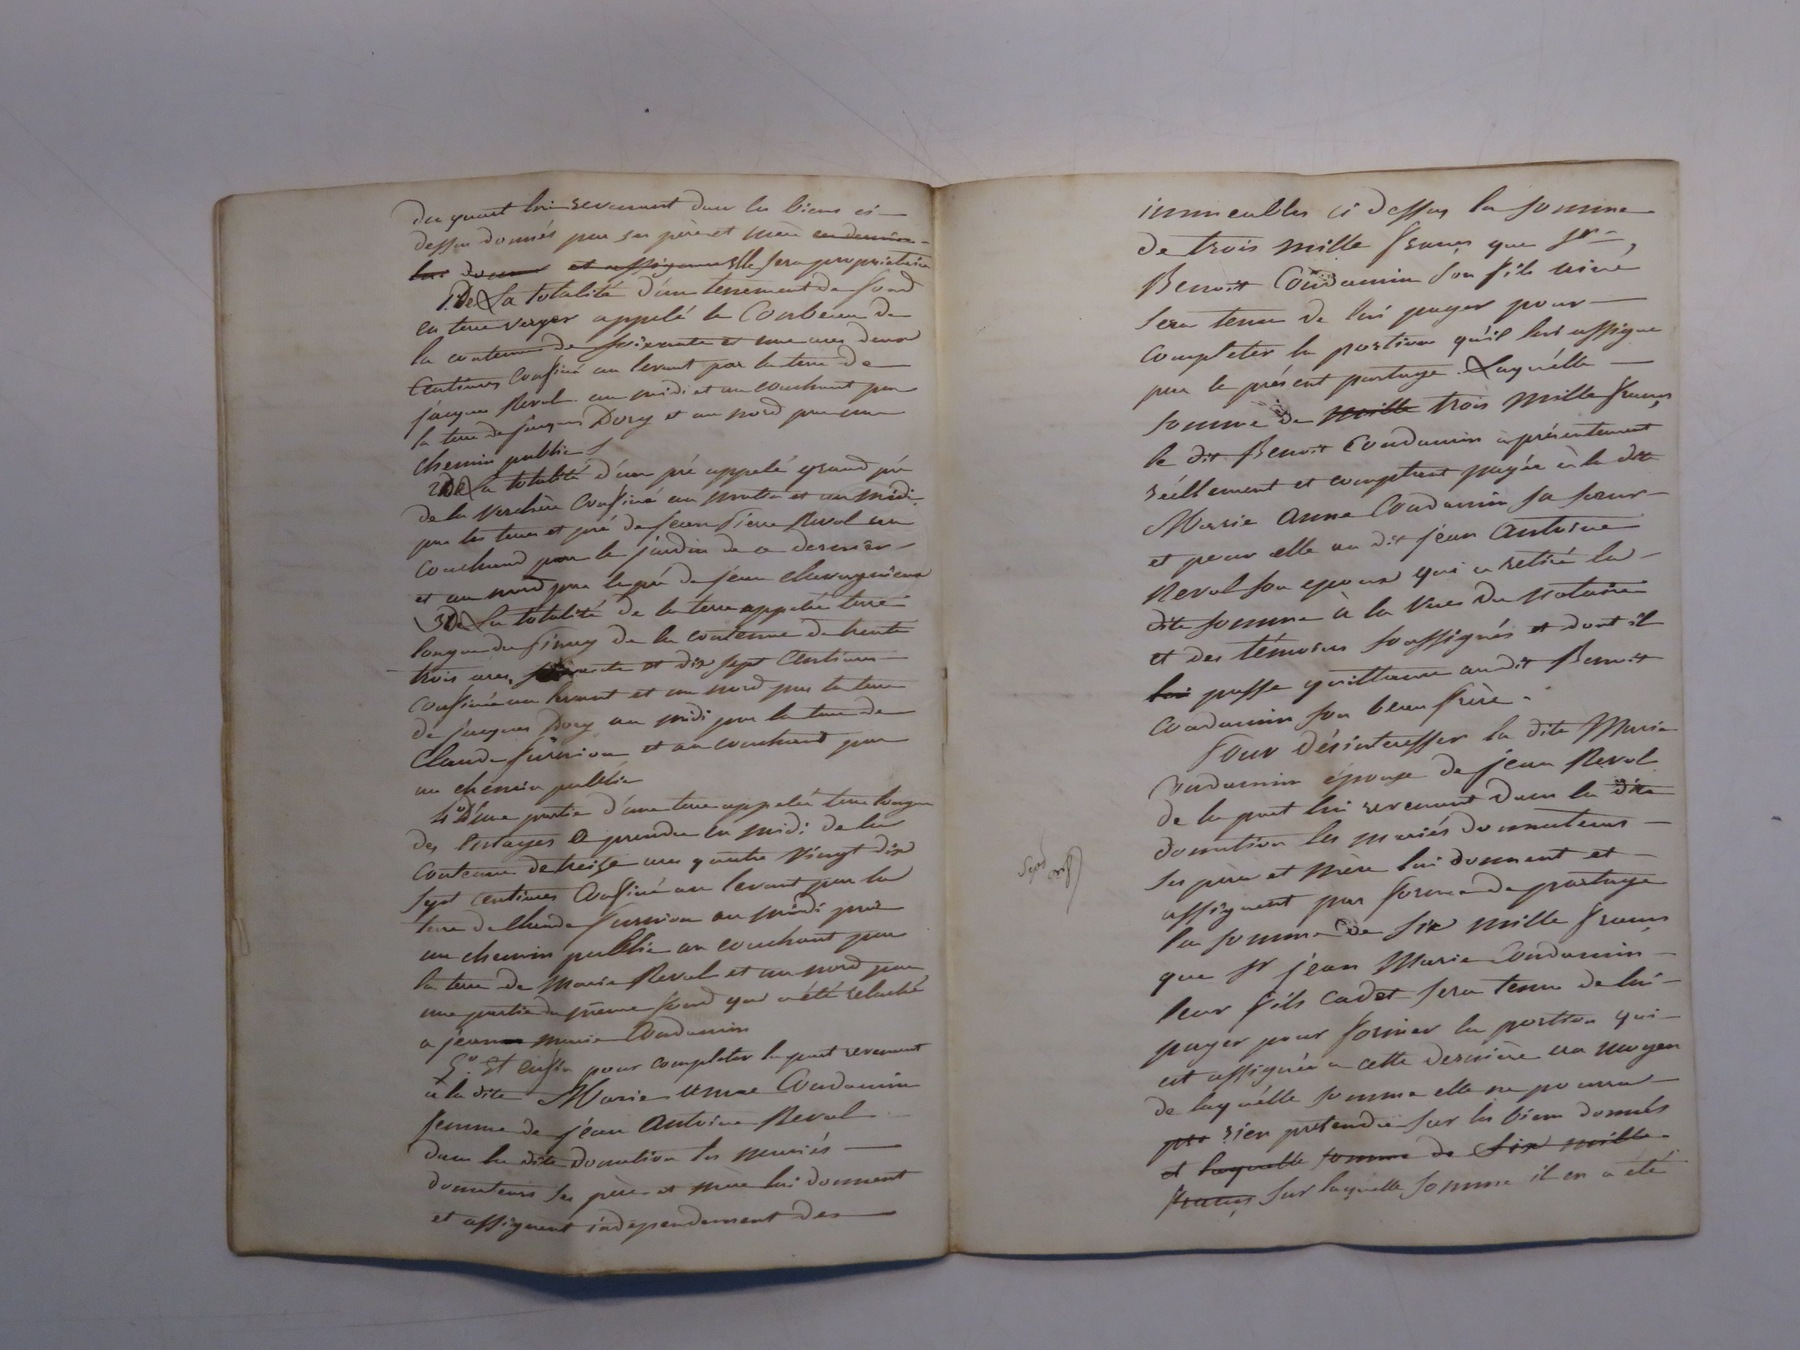 du quart lui revenant dans les biens ci-
dessus donnés par ses père et mère
lui donnent et assignent Elle sera propriétaire
1° De la totalité d'un tenement de fond
en terre verger appelé le Corbeau de
la contenue de soixante et une ares deux
Centiares Confiné au levant par la terre de
jacques Reval au midi et au couchant par
la terre de jacques Dory et au nord par un
chemin public
2° De la totalité d'un pré appelé grand pré
de la Verchère Confiné au matin et au midi
par les terres et pré de jean Pierre Reval au
couchand par le jardin de ce dernier
et au nord par le pré de jean
3° De la totalité de la terre appelée terre
longue du de la contenue de trente
trois ares et dix sept Centiares
confinée au levant et au nord par la terre
de jacques Dory au midi par la terre de
Claude furnion et au couchand par
un chemin public
4° D'une partie d'une terre appelée terre longue
des a prendre en midi de la
Contenue de treize ares quatre Vingt dix
Sept centiares Confiné au levant par la
terre de Claude furnion au midi par
un chemin public au couchant par
la terre de Marie Reval et au nord par
une partie du même fond qui a été relaché
a jean marie Condamin
5° Et enfin pour completer la part revenant
à la dite Marie anne Condamin
femme de jéan Antoine Reval
dans la dite donation les mariés
donateurs ses père et mère lui donnent
et assignent indépendament des
immeubles ci dessus la somme
de trois mille francs que Sr
Benoit Condamin son fils ainé
sera tenu de lui payer pour
completer la portion qu'il lui assigne
par le présent partage. Laquélle
somme de mille trois mille francs
le dit Benoit Condamin a présentement
réellement et comptant payée à la dite
Marie anne Condamin sa sœur
et pour elle au dit jéan antoine
Reval son epoux qui a retiré la
dite somme à la Vue du notaire
et des témoins soussignés et dont il
lui passe quittance au dit Benoit
Condamin son beau frère.
Pour désintéresser la dite Marie
Condamin épouse de jean Reval
de la part lui revenant dans la dite
donation les mariés donnateurs
ses père et mère lui donnent et
assignent par forme de partage
la somme de six mille francs
que Sr jéan Marie Condamin
leur fils cadet sera tenu de lui
payer pour former la portion qui
est assignée a cette dernière au moyen
de laquélle somme elle ne pourra
pas rien pretendre sur les biens donnés
et laquelle somme de six mille
francs sur laquelle somme il en a été